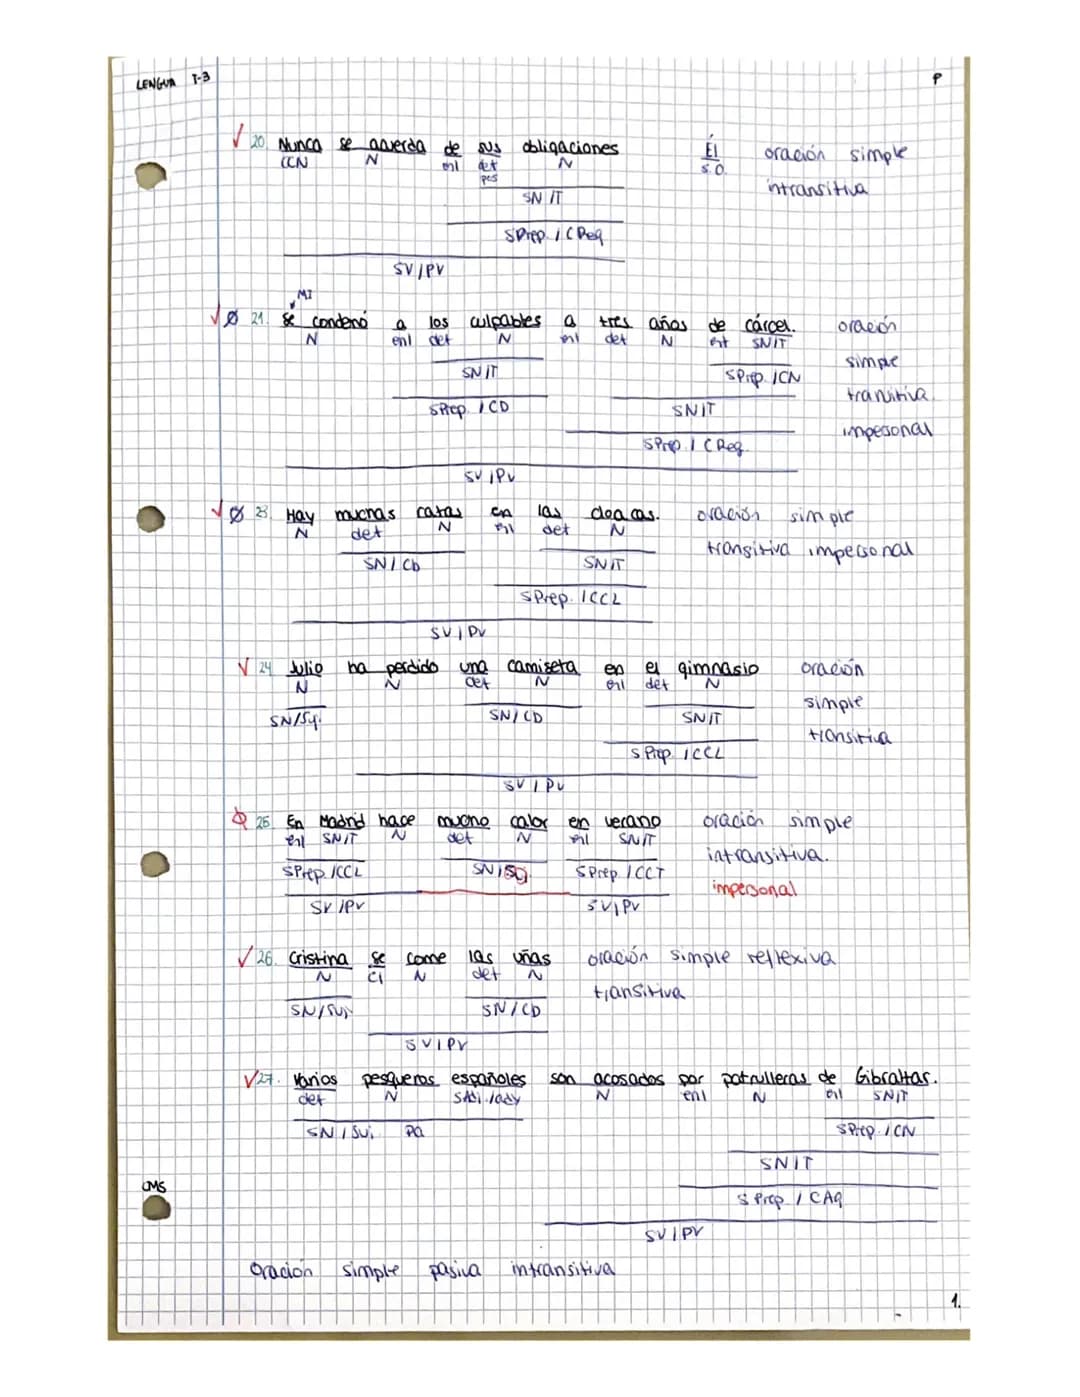 LENGUA T-3 P
√ 20. Nunca se acuerda de sus obligaciones Él oración simple
CCN N enl det N S.O. intransitiva
pos
SN/T
SPrep / CReg
SV/PV
MI
√ Ø 21. Se condenó a los culpables a tres años de cárcel. oración
N enl det N enl det N enl SN/T simple
SN/T SPrep / CN transitiva
SPrep / CD SN/T impersonal
SPrep / CReg.
SV/PV
√ Ø 23. Hay muchas ratas en las cloacas. oración simple
N det N enl det N transitiva impersonal
SN/CD SN/T
SPrep. / CCL
SV/PV
√ 24. Julio ha perdido una camiseta en el gimnasio oración
N N det N enl det N simple
SN/Suj. SN/CD SN/T transitiva
SPrep. / CCL
SV/PV
Ø 25. En Madrid hace mucho calor en verano oración simple
enl SN/T N det N enl SN/T intransitiva.
SPrep. /CCL SN/ SPrep / CCT impersonal
SV/PV SV/PV
√ 26. Cristina se come las uñas oración simple reflexiva
N CI N det N transitiva
SN/Suj SN/CD
SV/PV
√ 27. Varios pesqueros españoles son acosados por patrulleras de Gibraltar.
det N SAdj./ady N enl N enl SN/T
SN/Suj. pa SPrep. / CN
SN/T
CMS SPrep / CAg
SV/PV
Oración simple pasiva intransitiva
1.